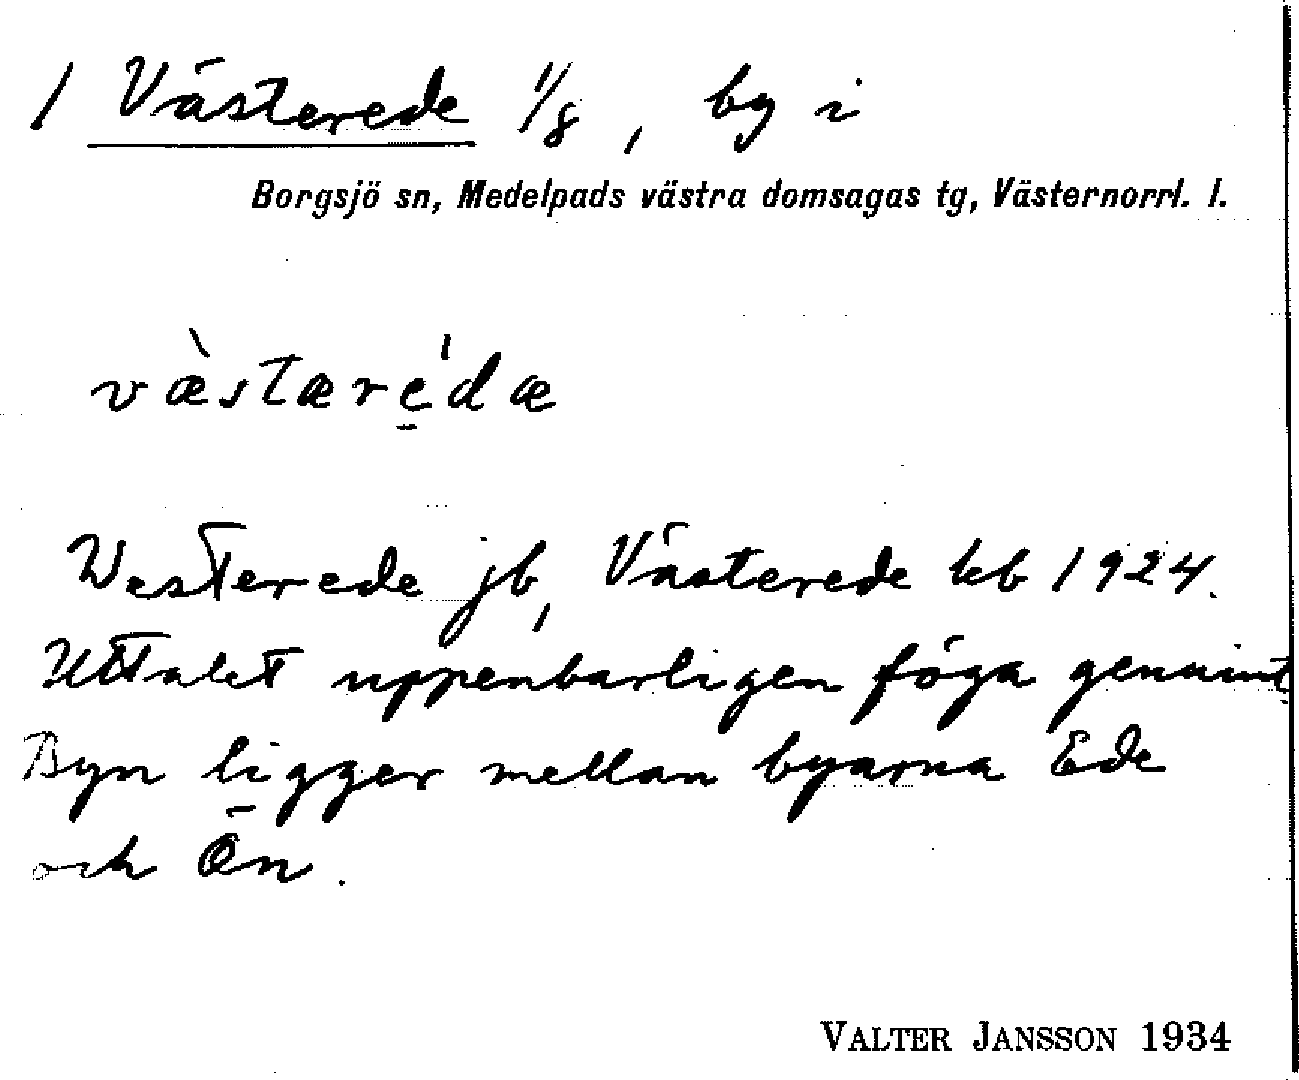 1 Västerede 1/8, by i
Borgsjö sn, Medelpads västra domsagas tg, Västernorrl. l.
væ̀stære̱̍dæ
Westerede jb, Västerede kb 1924.
Uttalet uppenbarligen föga genuint
Byn ligger mellan byarna Ede
och Ön.
VALTER JANSSON 1934